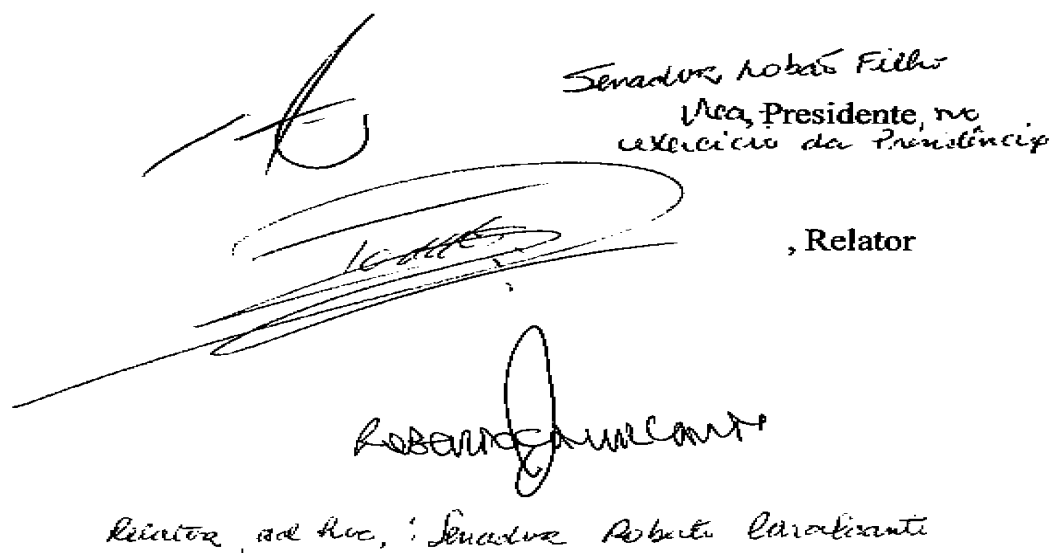 Senador Lobão Filho
Vice, Presidente, no
exercício da Presidência
, Relator
Relator ad hoc, : Senador Roberto Cavalcanti